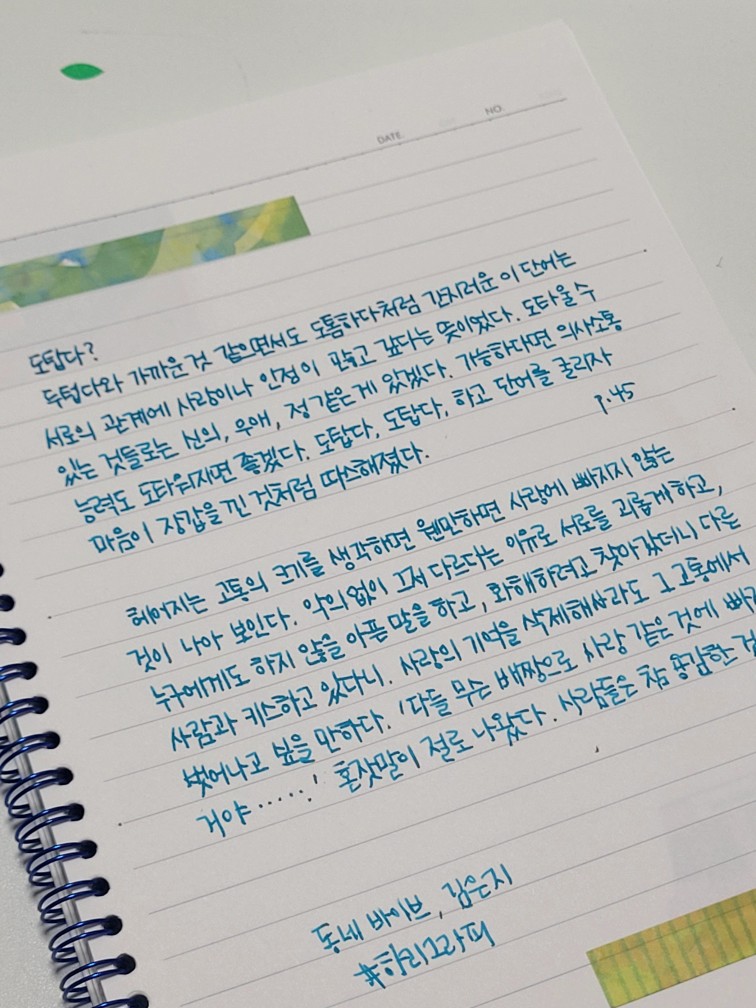 DATE NO.
도탑다?
두텁다와 가까운 것 같으면서도 도톰하다처럼 간지러운 이 단어는
서로의 관계에 사랑이나 인정이 많고 깊다는 뜻이었다. 도타울 수
있는 것들로는 신의, 우애, 정 같은 게 있겠다. 가능하다면 의사소통
능력도 도타워지면 좋겠다. 도탑다, 도탑다, 하고 단어를 굴리자
마음이 장갑을 낀 것처럼 따스해졌다.
P.45
헤어지는 고통의 크기를 생각하면 웬만하면 사랑에 빠지지 않는
것이 나아 보인다. 악의 없이 그저 다르다는 이유로 서로를 괴롭게 하고,
누구에게도 하지 않을 아픈 말을 하고, 화해하려고 찾아갔더니 다른
사람과 키스하고 있다니. 사랑의 기억을 삭제해서라도 그 고통에서
벗어나고 싶을 만하다. '다들 무슨 배짱으로 사랑 같은 것에 빠지
거야……!' 혼잣말이 절로 나왔다. 사람들은 참 용감한 것
동네 바이브, 김은지